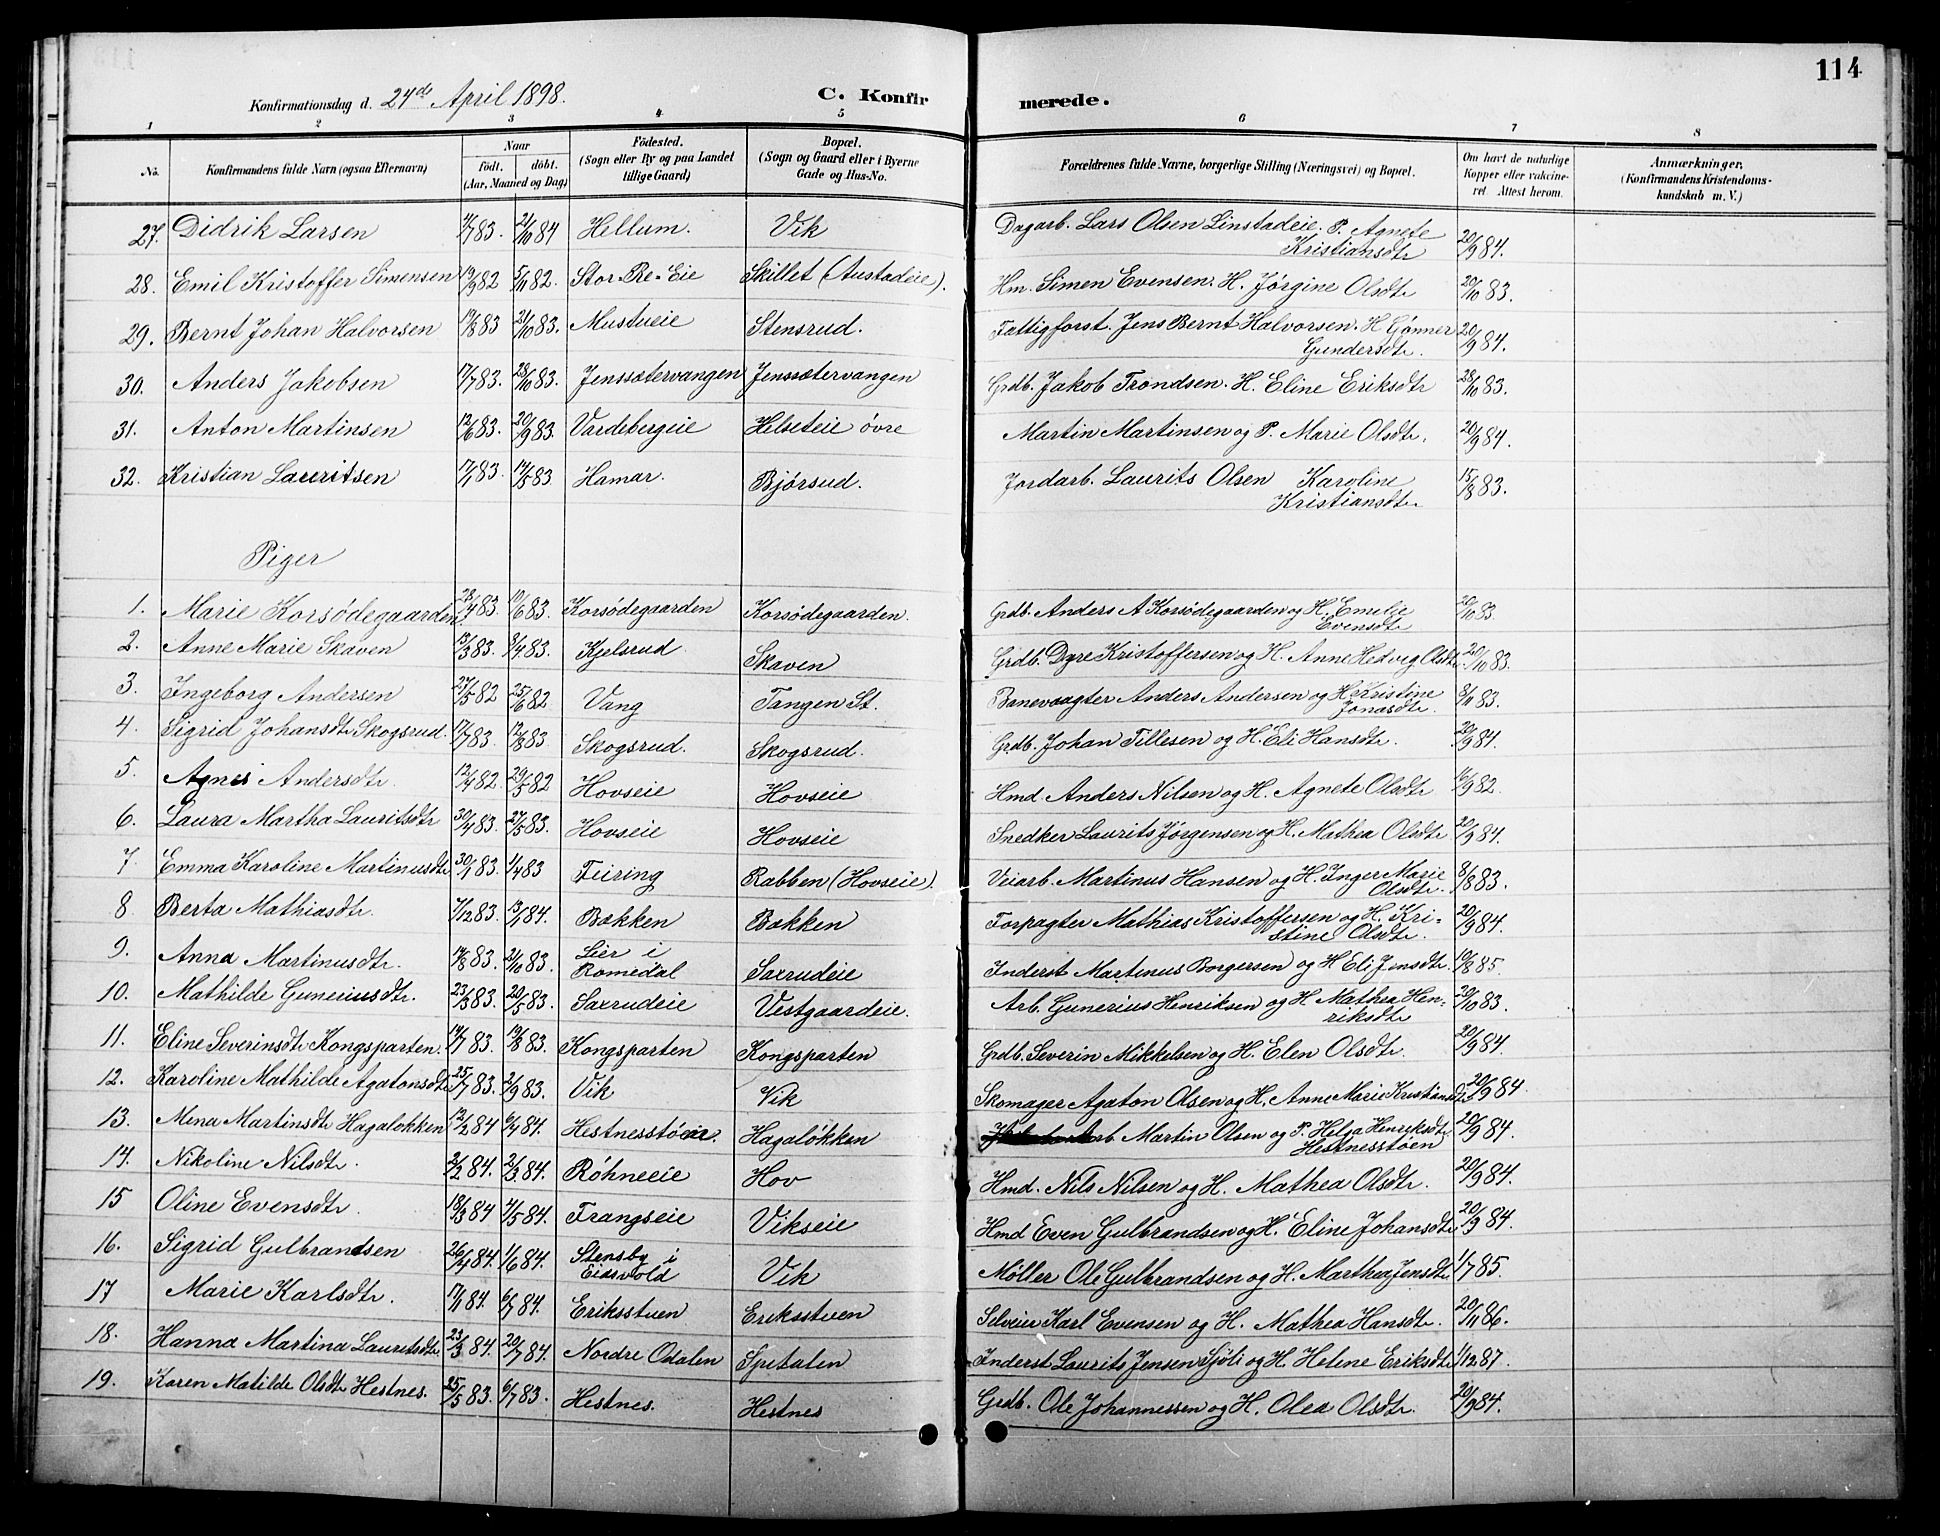 114
Konfirmationsdag d. 24de April 1898.
C. Konfirmerede.
1 2 3 4 5 6 7 8
No. Konfirmandens fulde Navn (ogsaa Efternavn) Naar født. døbt. (Aar, Maaned og Dag) Födested. (Sogn eller By og paa Landet tillige Gaard) Bopæl. (Sogn og Gaard eller i Byerne Gade og Hus-No. Forældrenes fulde Navne, borgerlige Stilling (Næringsvei) og Bopæl. Om havt de naturlige Kopper eller vakcineret. Attest herom. Anmærkninger. (Konfirmandens Kristendomskundskab m. V.)
27. Didrik Larsen 4/7 83. 21/10 84 Hellum. Vik Dagarb. Lars Olsen Linstadeie. P. Agnete Kristiansdtr 20/9 84.
28. Emil Kristoffer Simensen 19/9 82 5/11 82. Stor-Re-Eie Skillet (Austadeie). Hm. Simen Evensen. H. Jørgine Olsdtr 20/10 83.
29. Bernt Johan Halvorsen 14/8 83 21/10 83. Mustueie Stensrud. Fattigforst. Jens Bernt Halvorsen. H. Gønner Gundersdtr. 20/9 84.
30. Anders Jakobsen 17/7 83. 28/10 83. Jenssætervangen Jenssætervangen Grdb. Jakob Trondsen. H. Eline Eriksdtr 28/10 83.
31. Anton Martinsen 12/6 83. 30/9 83. Vardebergeie Helseteie övre Martin Martinsen og P. Marie Olsdtr. 20/9 84.
32. Kristian Lauritsen 17/1 83. 14/5 83 Hamar. Bjørsud. Jordarb. Laurits Olsen Karoline Kristiansdtr. 15/8 83.
Piger
1. Marie Korsödegaarden 28/4 83. 10/6 83. Korsödegaarden Korsödegaarden. Grdb. Anders A Korsödegaarden og H. Emelie Evensdtr 20/10 83.
2. Anne Marie Skaven 13/3 83. 8/4 83. Kjelsrud Skaven Grdb. Dyre Kristoffersen og H. Anne Hedvig Olsdtr. 20/10 83.
3. Ingeborg Andersen 27/5 82 25/6 82 Vang Tangen St. Banevogter Anders Andersen og H. Kristine Jonasdtr. 8/11 83.
4. Sigrid Johansdtr Skogsrud 17/7 83. 12/8 83. Skogsrud. Skogsrud. Grdb. Johan Tillesen og H. Eli Hansdtr. 20/9 84.
5. Agnes Andersdtr. 12/4 82. 29/5 82 Hovseie Hovseie Hmd. Anders Nilsen og H. Agnete Olsdtr 16/9 82.
6. Laura Martha Lauritsdtr 30/4 83. 27/5 83. Hovseie Hovseie Snedker Laurits Jørgensen og H. Mathea Olsdtr 20/9 84.
7. Emma Karoline Martinusdtr 30/1 83. 1/4 83 Feiring Rabben (Hovseie). Veiarb. Martinus Hansen og H. Inger Marie Olsdtr. 8/8 83.
8. Berta Mathiasdtr. 7/12 83. 13/1 84. Bækken Bækken Forpagter Mathias Kristoffersen og H. Kristine Olsdtr. 20/9 84.
9. Anna Martinusdtr. 14/8 83. 21/10 83. Lier i Romedal Saxrudeie Inderst Martinus Borgersen og H Eli Jensdtr. 19/8 85.
10. Mathilde Guneriusdtr. 23/3 83. 20/5 83. Saxrudeie Vestgaardeie. Arb. Gunerius Henriksen og H. Mathea Henriksdtr 20/10 83.
11. Eline Severinsdtr Kongsparten. 14/7 83. 19/8 83. Kongsparten Kongsparten Grdb. Severin Mikkelsen og H. Elen Olsdtr. 20/9 84.
12. Karoline Mathilde Agatonsdtr 25/7 83. 2/9 83. Vik Vik Skomager Agaton Olsen og H. Anne Marie Kristiansdtr 20/9 84.
13. Mina Martinsdtr Hagaløkken 12/2 84 6/4 84. Hestnesstøen. Hagaløkken Arb Martin Olsen og P. Helga Henriksdtr Hestnesstøen 20/9 84.
14. Nikoline Nilsdtr. 2/2 84. 2/3 84. Röhneeie Hov Hmd. Nils Nilsen og H. Mathea Olsdtr. 20/9 84.
15 Oline Evensdtr. 18/3 84 4/5 84. Frangseie Vikseie Hmd Even Gulbrandsen og H. Eline Johansdtr. 20/9 84.
16. Sigrid Gulbrandsen 26/4 84. 1/6 84. Stensby i Eidsvold Vik Møller Ole Gulbrandsen og H. Marthea Jensdtr. 1/7 85.
17 Marie Karlsdtr. 17/1 84. 6/7 84. Eriksstuen Eriksstuen Selveier Karl Evensen og H. Mathea Hansdtr. 20/11 86.
18. Hanna Martina Lauritsdtr 23/3 84. 20/7 84. Nordre Odalen Spetalen Inderst Laurits Jensen Sjöli og H. Helene Eriksdtr 1/12 87.
19. Karen Matilde Olsdtr Hestnes. 25/5 83. 6/7 83. Hestnes. Hestnes Grdb. Ole Johannessen og H. Olea Olsdtr. 20/9 84.